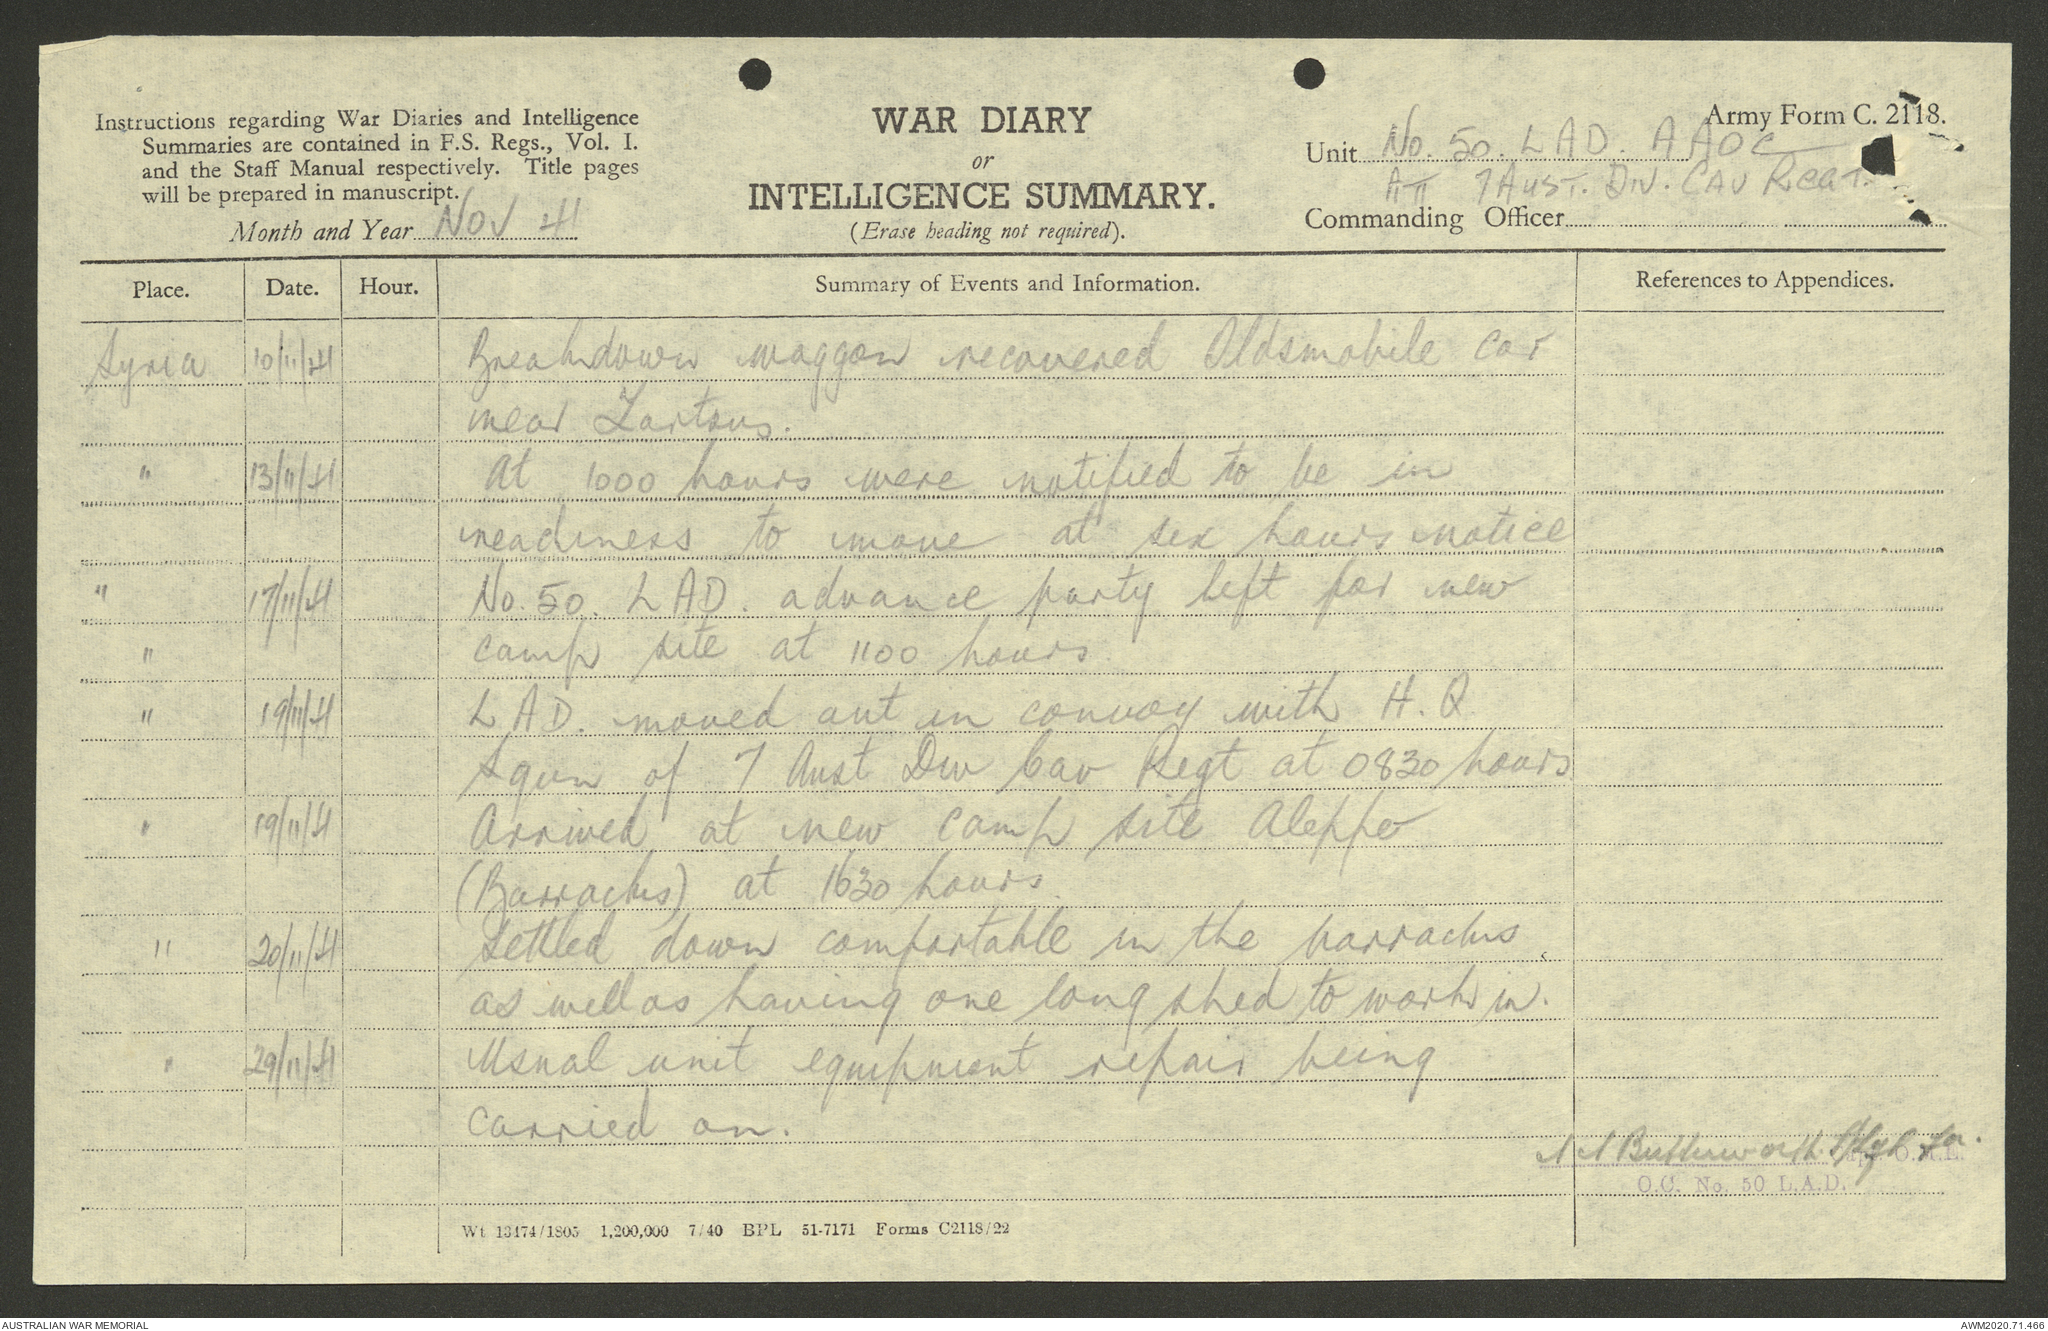 Army Form C. 2118.
Instructions regarding War Diaries and Intelligence
Summaries are contained in F.S. Regs., Vol. I.
and the Staff Manual respectively. Title pages
will be prepared in manuscript.
Month and Year NOV 41
WAR DIARY
or
INTELLIGENCE SUMMARY.
(Erase heading not required).
Unit No. 50. LAD. AAOC
ATT 7 AUST. DIV. CAV REGT.
Commanding Officer
Place. Date. Hour. Summary of Events and Information. References to Appendices.
Syria 10/11/41 Breakdown waggon recovered Oldsmobile car
near Tartous.
" 13/11/41 At 1000 hours were notified to be in
readiness to move at six hours notice
" 17/11/41 No. 50. LAD. advance party left for new
" camp site at 1100 hours.
" 19/11/41 LAD. moved out in convoy with H.Q
Squn of 7 Aust Div Cav Regt at 0830 hours
" 19/11/41 Arrived at new camp site Aleppo
(Barracks) at 1630 hours.
" 20/11/41 Settled down comfortable in the barracks,
as well as having one long shed to work in.
" 29/11/41 Usual unit equipment repair being
carried on.
Butterworth for
O.C. No. 50 L.A.D.
Wt 13474/1805 1,200,000 7/40 BPL 51-7171 Forms C2118/22
AUSTRALIAN WAR MEMORIAL
AWM2020.71.466